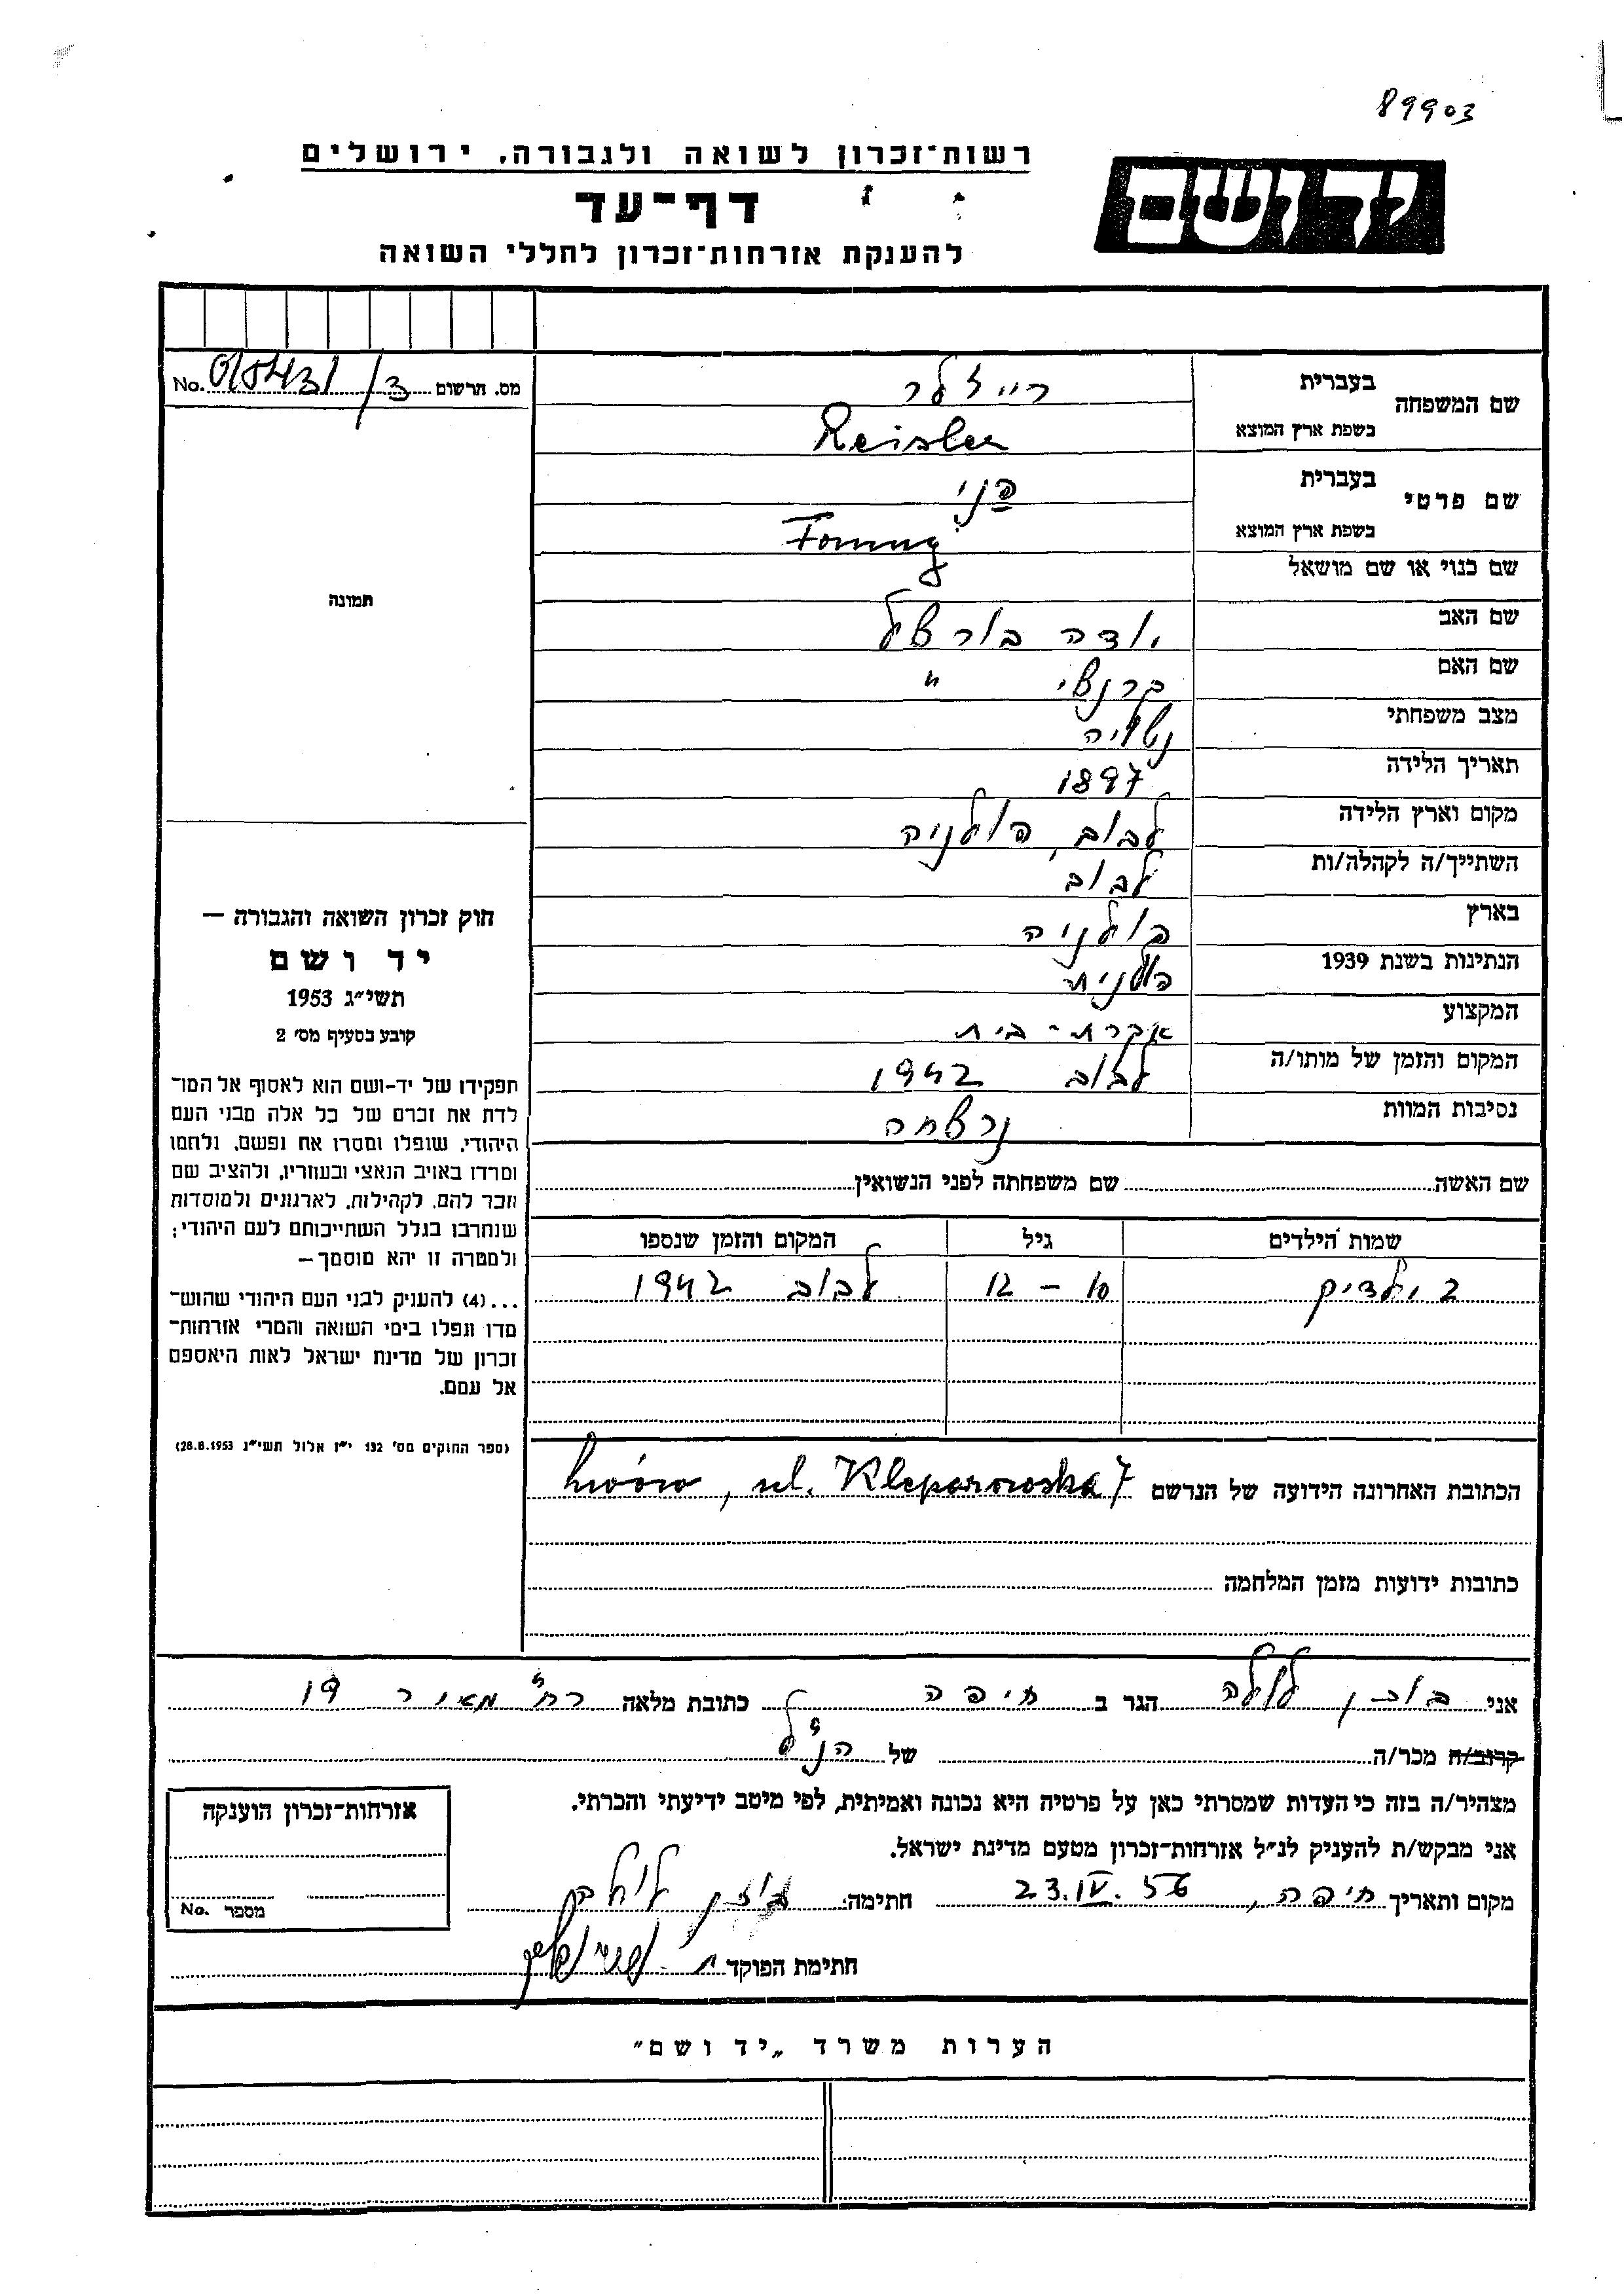 89903
רשות־זכרון לשואה ולגבורה, ירושלים
יד ושם
דף־עד
להענקת אזרחות־זכרון לחללי השואה
מס. תרשום No.
שם המשפחה
בעברית
רייזלר
בשפת ארץ המוצא
Reisler
שם פרטי
בעברית
פני
בשפת ארץ המוצא
Fanny
שם כנוי או שם מושאל
שם האב
שם האם
"
מצב משפחתי נשואה
תאריך הלידה 1897
מקום וארץ הלידה לבוב, פולניה
השתייך/ה לקהלה/ות לבוב
בארץ פולניה
הנתינות בשנת 1939 פולנית
המקצוע עקרת-בית
המקום והזמן של מותו/ה לבוב 1942
נסיבות המוות נרצחה
שם האשה שם משפחתה לפני הנשואין
שמות הילדים גיל המקום והזמן שנספו
2 ילדים 10 - 12 לבוב 1942
הכתובת האחרונה הידועה של הנרשם Lwów, ul. Kleparowska 7
כתובות ידועות מזמן המלחמה
תמונה
חוק זכרון השואה והגבורה —
יד ושם
תשי״ג 1953
קובע בסעיף מס׳ 2
תפקידו של יד-ושם הוא לאסוף אל המו־
לדת את זכרם של כל אלה מבני העם
היהודי, שנפלו ומסרו את נפשם, נלחמו
ומרדו באויב הנאצי ובעוזריו, ולהציב שם
וזכר להם, לקהילות, לארגונים ולמוסדות
שנחרבו בגלל השתייכותם לעם היהודי;
ולמטרה זו יהא מוסמך—
...(4) להעניק לבני העם היהודי שהוש־
מדו ונפלו בימי השואה והמרי אזרחות־
זכרון של מדינת ישראל לאות היאספם
אל עמם.
(ספר החוקים מס׳ 132 י״ז אלול תשי״ג 28.8.1953)
אני הגר ב חיפה כתובת מלאה רח׳ מאיר 19
קרוב/ה מכר/ה של הנ״ל
מצהיר/ה בזה כי העדות שמסרתי כאן על פרטיה היא נכונה ואמיתית, לפי מיטב ידיעתי והכרתי.
אני מבקש/ת להעניק לנ״ל אזרחות־זכרון מטעם מדינת ישראל.
מקום ותאריך חיפה, 23.IV.56 חתימה
חתימת הפוקד
אזרחות־זכרון הוענקה
מספר No.
הערות משרד „יד ושם״